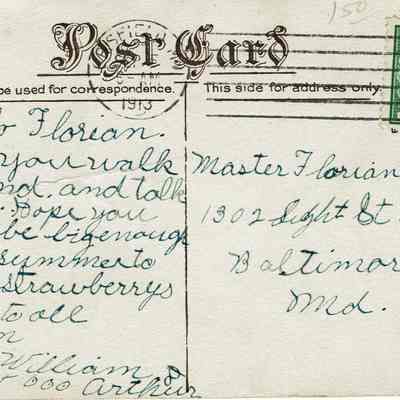 150
Post Card
SFIELD
AM
1913
be used for correspondence.
This side for address only.
Florian.
you walk
and talk
Hope you
be big enough
summer to
strawberrys
to all
William &
Arthur
Master Florian
1302 Light St
Baltimor
Md.